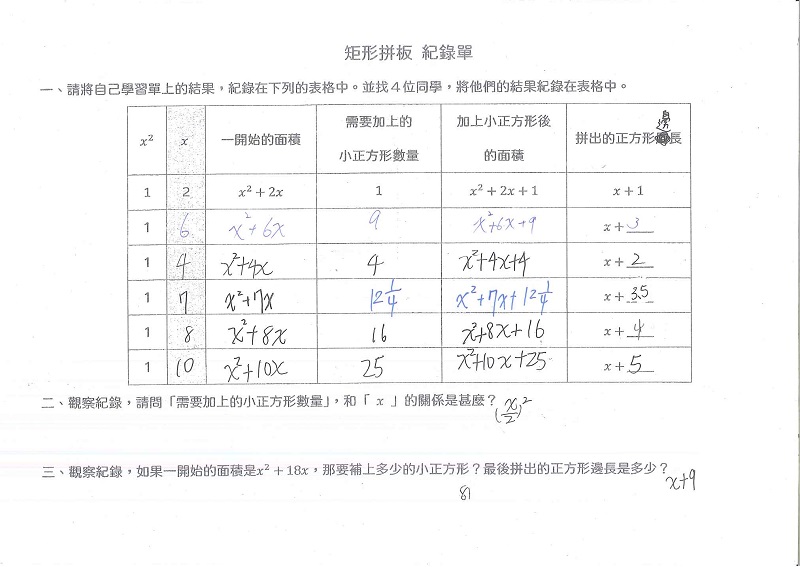 矩形拼板 紀錄單
一、請將自己學習單上的結果，紀錄在下列的表格中。並找４位同學，將他們的結果紀錄在表格中。
x² x 一開始的面積 需要加上的小正方形數量 加上小正方形後的面積 拼出的正方形邊長
1 2 x²+2x 1 x²+2x+1 x+1
1 6 x²+6x 9 x²+6x+9 x+3
1 4 x²+4x 4 x²+4x+4 x+2
1 7 x²+7x 12 1/4 x²+7x+12 1/4 x+3.5
1 8 x²+8x 16 x²+8x+16 x+4
1 10 x²+10x 25 x²+10x+25 x+5
二、觀察紀錄，請問「需要加上的小正方形數量」，和「 x 」的關係是甚麼？(x/2)²
三、觀察紀錄，如果一開始的面積是x²+18x，那要補上多少的小正方形？最後拼出的正方形邊長是多少？x+9
81